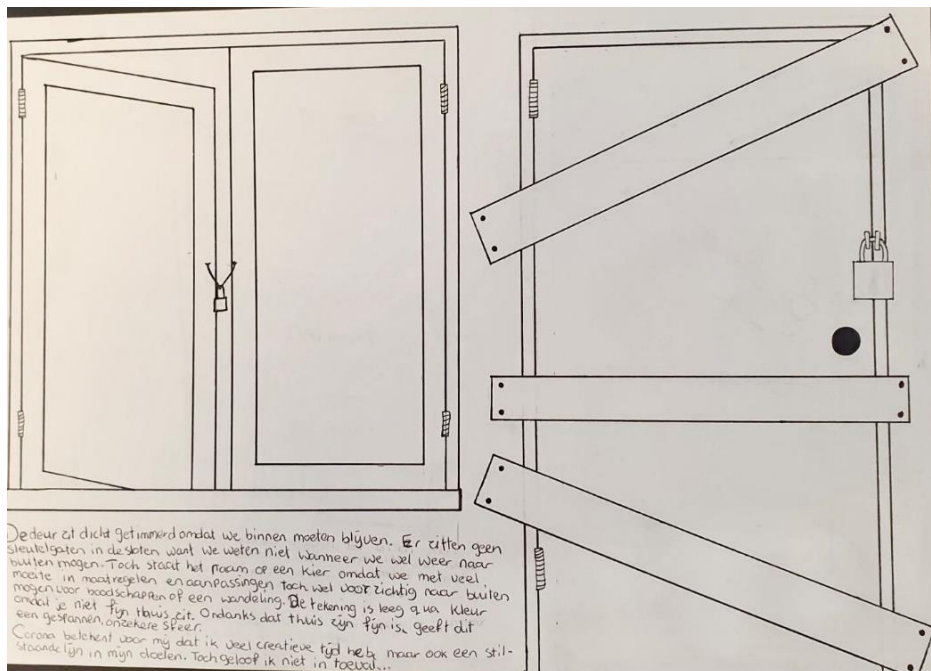 De deur zit dicht getimmerd omdat we binnen moeten blijven. Er zitten geen
sleutelgaten in de sloten want we weten niet wanneer we wel weer naar
buiten mogen. Toch staat het raam op een kier omdat we met veel
moeite in maatregelen en aanpassingen toch wel voorzichtig naar buiten
mogen voor boodschappen of een wandeling. De tekening is leeg qua kleur
omdat je niet fijn thuis zit. Ondanks dat thuis zijn fijn is, geeft dit
een gespannen, onzekere sfeer.
Corona betekent voor mij dat ik veel creatieve tijd heb, maar ook een stil-
staande lijn in mijn doelen. Toch geloof ik niet in toeval...